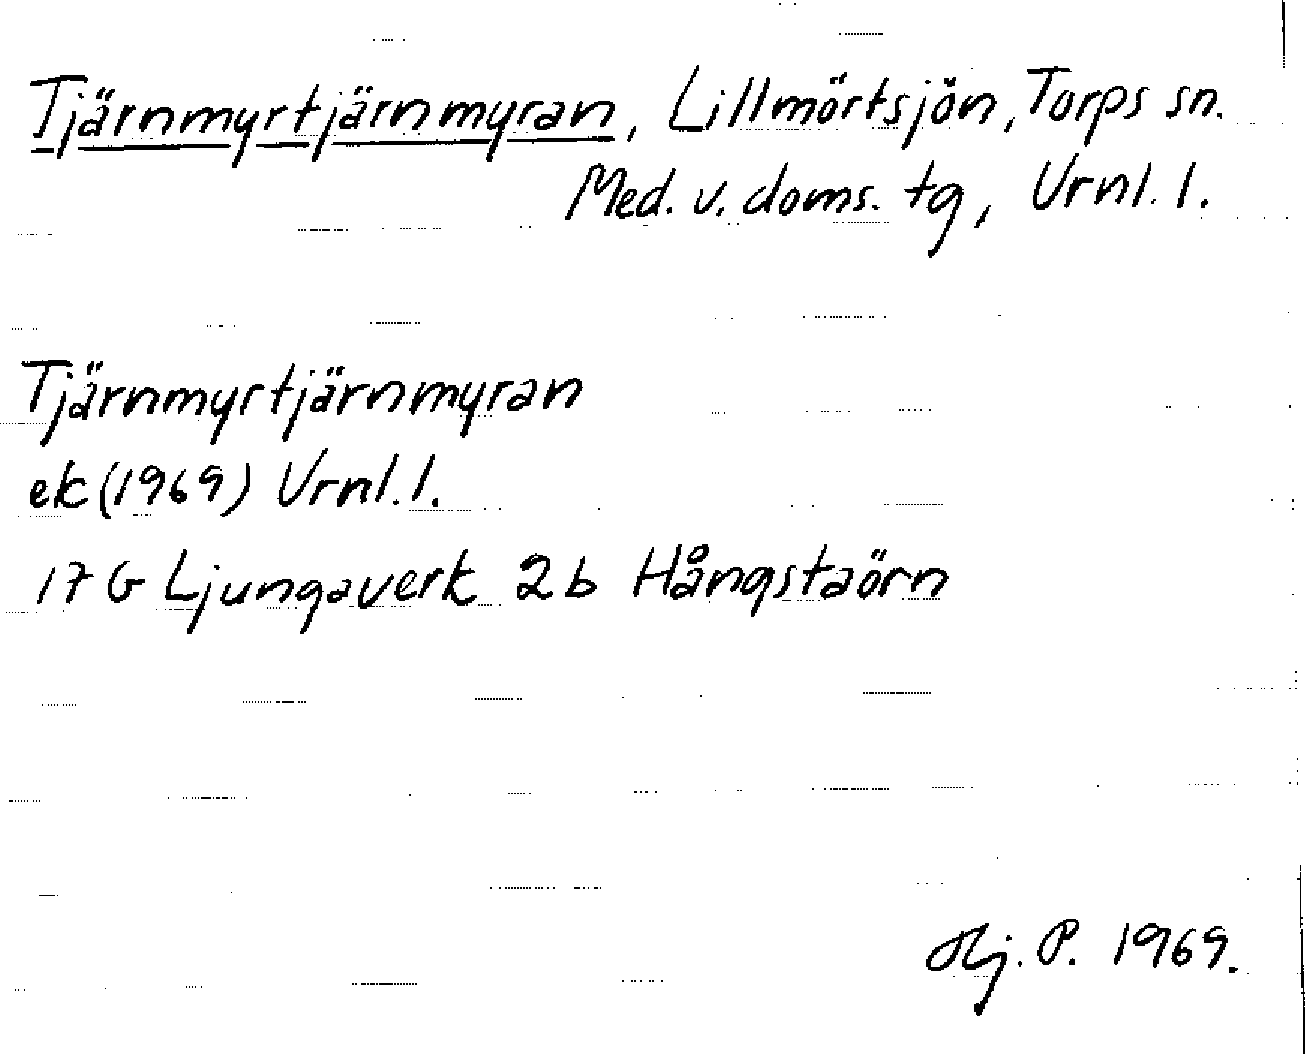 Tjärnmyrtjärnmyran, Lillmörtsjön, Torps sn.
Med. v. doms. tg, Vrnl. l.
Tjärnmyrtjärnmyran
ek (1969) Vrnl. l.
17 G Ljungaverk 2b Hångstaörn
Hj. P. 1969.